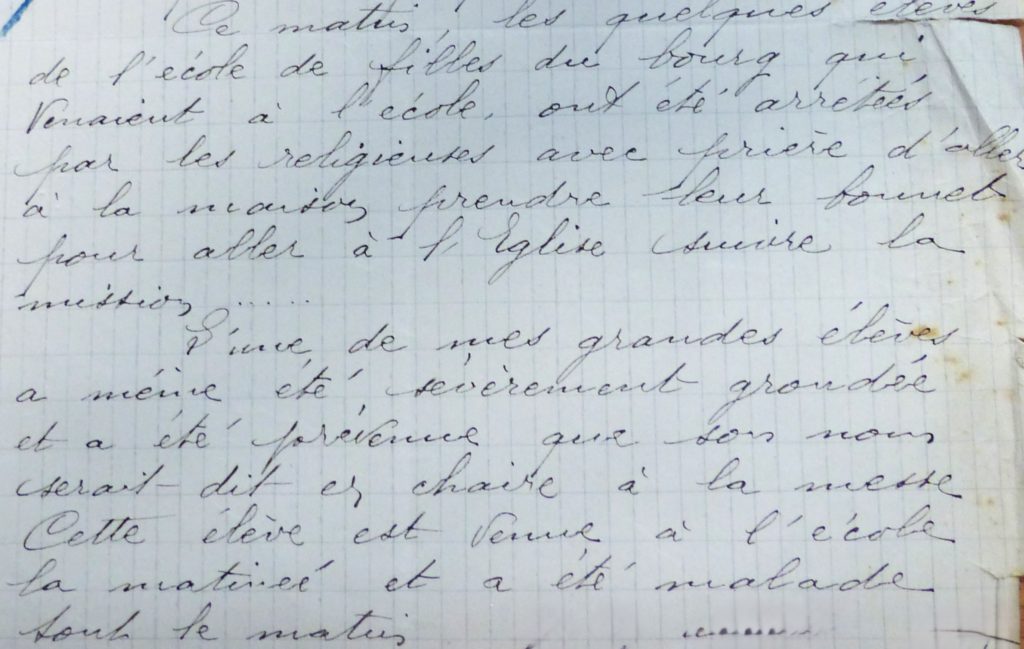 Ce matin, les quelques élèves
de l'école de filles du bourg qui
venaient à l'école, ont été arrêtées
par les religieuses avec prière d'aller
à la maison prendre leur bonnet
pour aller à l'Eglise suivre la
mission ......
L'une de mes grandes élèves
a même été sévèrement grondée
et a été prévenue que son nom
serait dit en chaire à la messe
Cette élève est venue à l'école
la matinée et a été malade
tout le matin